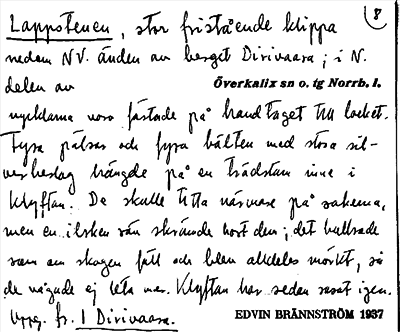 8
Lappstenen, stor fristående klippa
nedom NV. änden av berget Dirivaara; i N.
delen av
Överkalix sn o. tg Norrb. l.
nycklarna voro fästade på handtaget till locket.
Fyra pälsar och fyra bälten med stora sil-
verbeslag hängde på en trädstam inne i
klyftan. De skulle titta närmare på sakerna,
men en ilsken rån skrämde bort dem; det bullrade
som om skogen föll och blev alldeles mörkt, så
de vågade ej leta mer. Klyftan har sedan rasat igen.
Uppg. fr. 1 Dirivaara.
EDVIN BRÄNNSTRÖM 1937